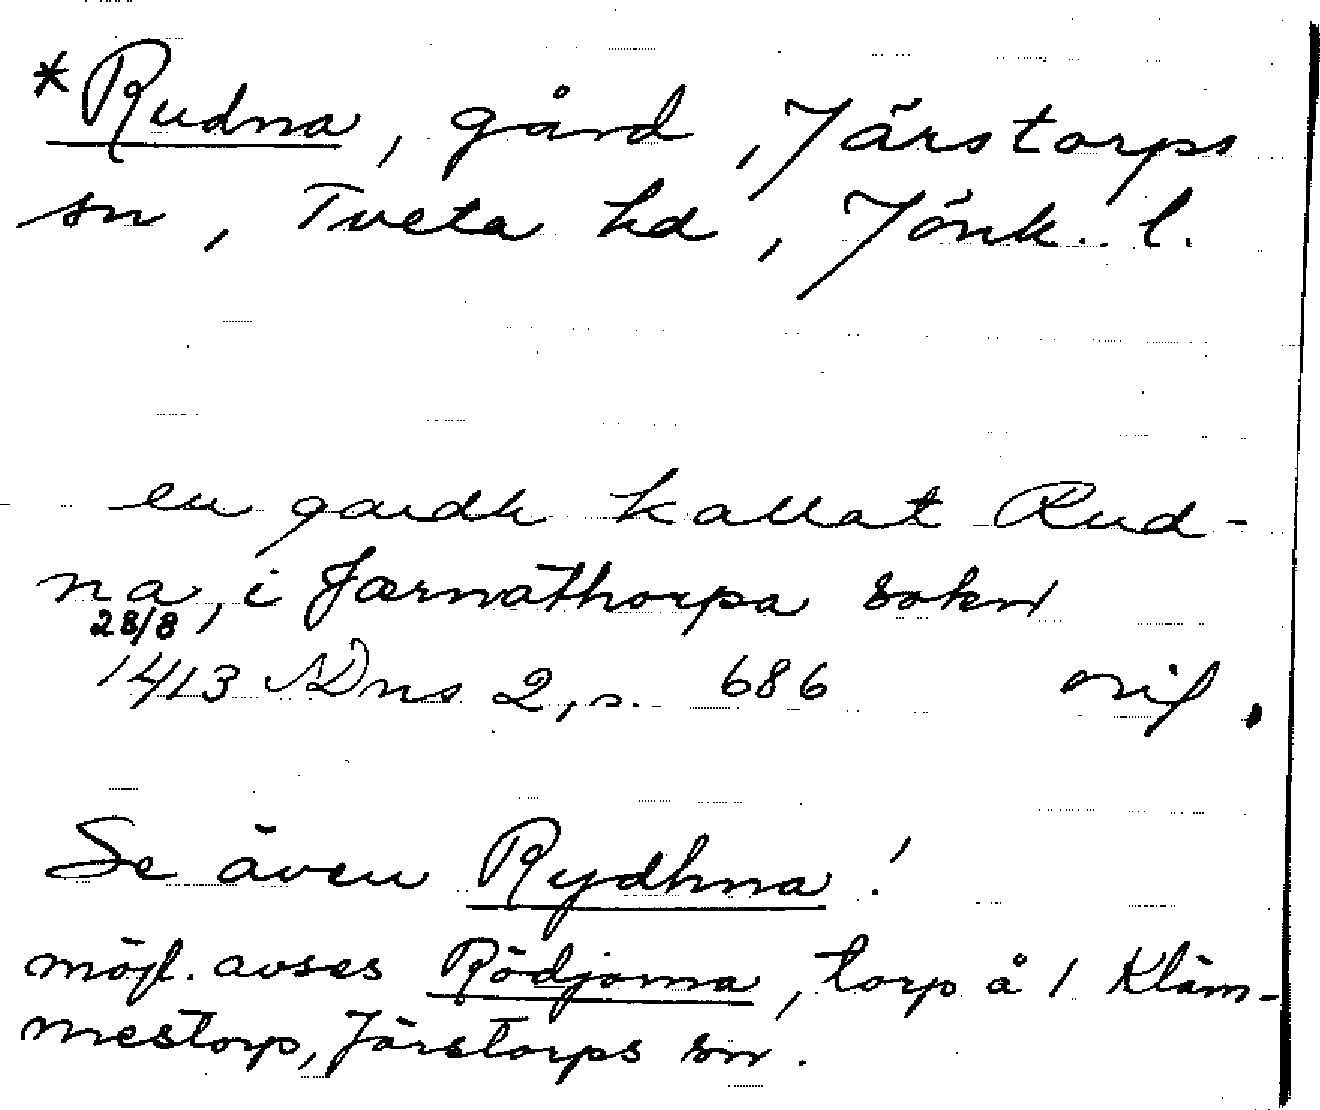 *Rudna, gård, Järstorps
sn, Tveta hd, Jönk. l.
en gardh kallat Rud-
na, i Jærnathorpa sokn
28/8
1413 NDns 2, s. 686 orig.
Se även Rydhna!
möjl. avses Rödjorna, torp å 1 Kläm-
mestorp, Järstorps sn.